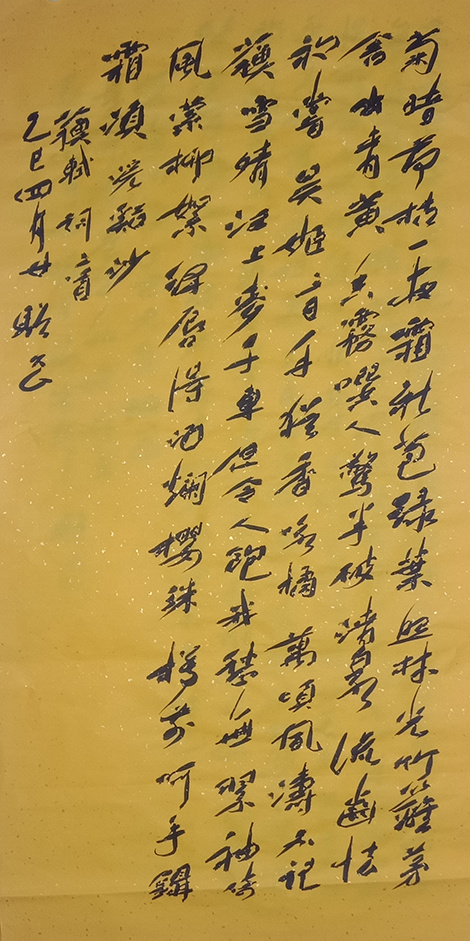 菊暗荷枯一夜霜新苞綠葉照林光竹籬茅
舍出青黄香霧噀人驚半破清泉流齒怯
初嘗吴姬三日手猶香咏橘萬頃風濤不記
蘇雪晴江上麥千車但令人飽我愁無翠袖倚
風縈柳絮絳唇得酒爛櫻珠樽前呵手鑷
霜須浣谿沙
蘇軾詞二首
乙巳四月廿